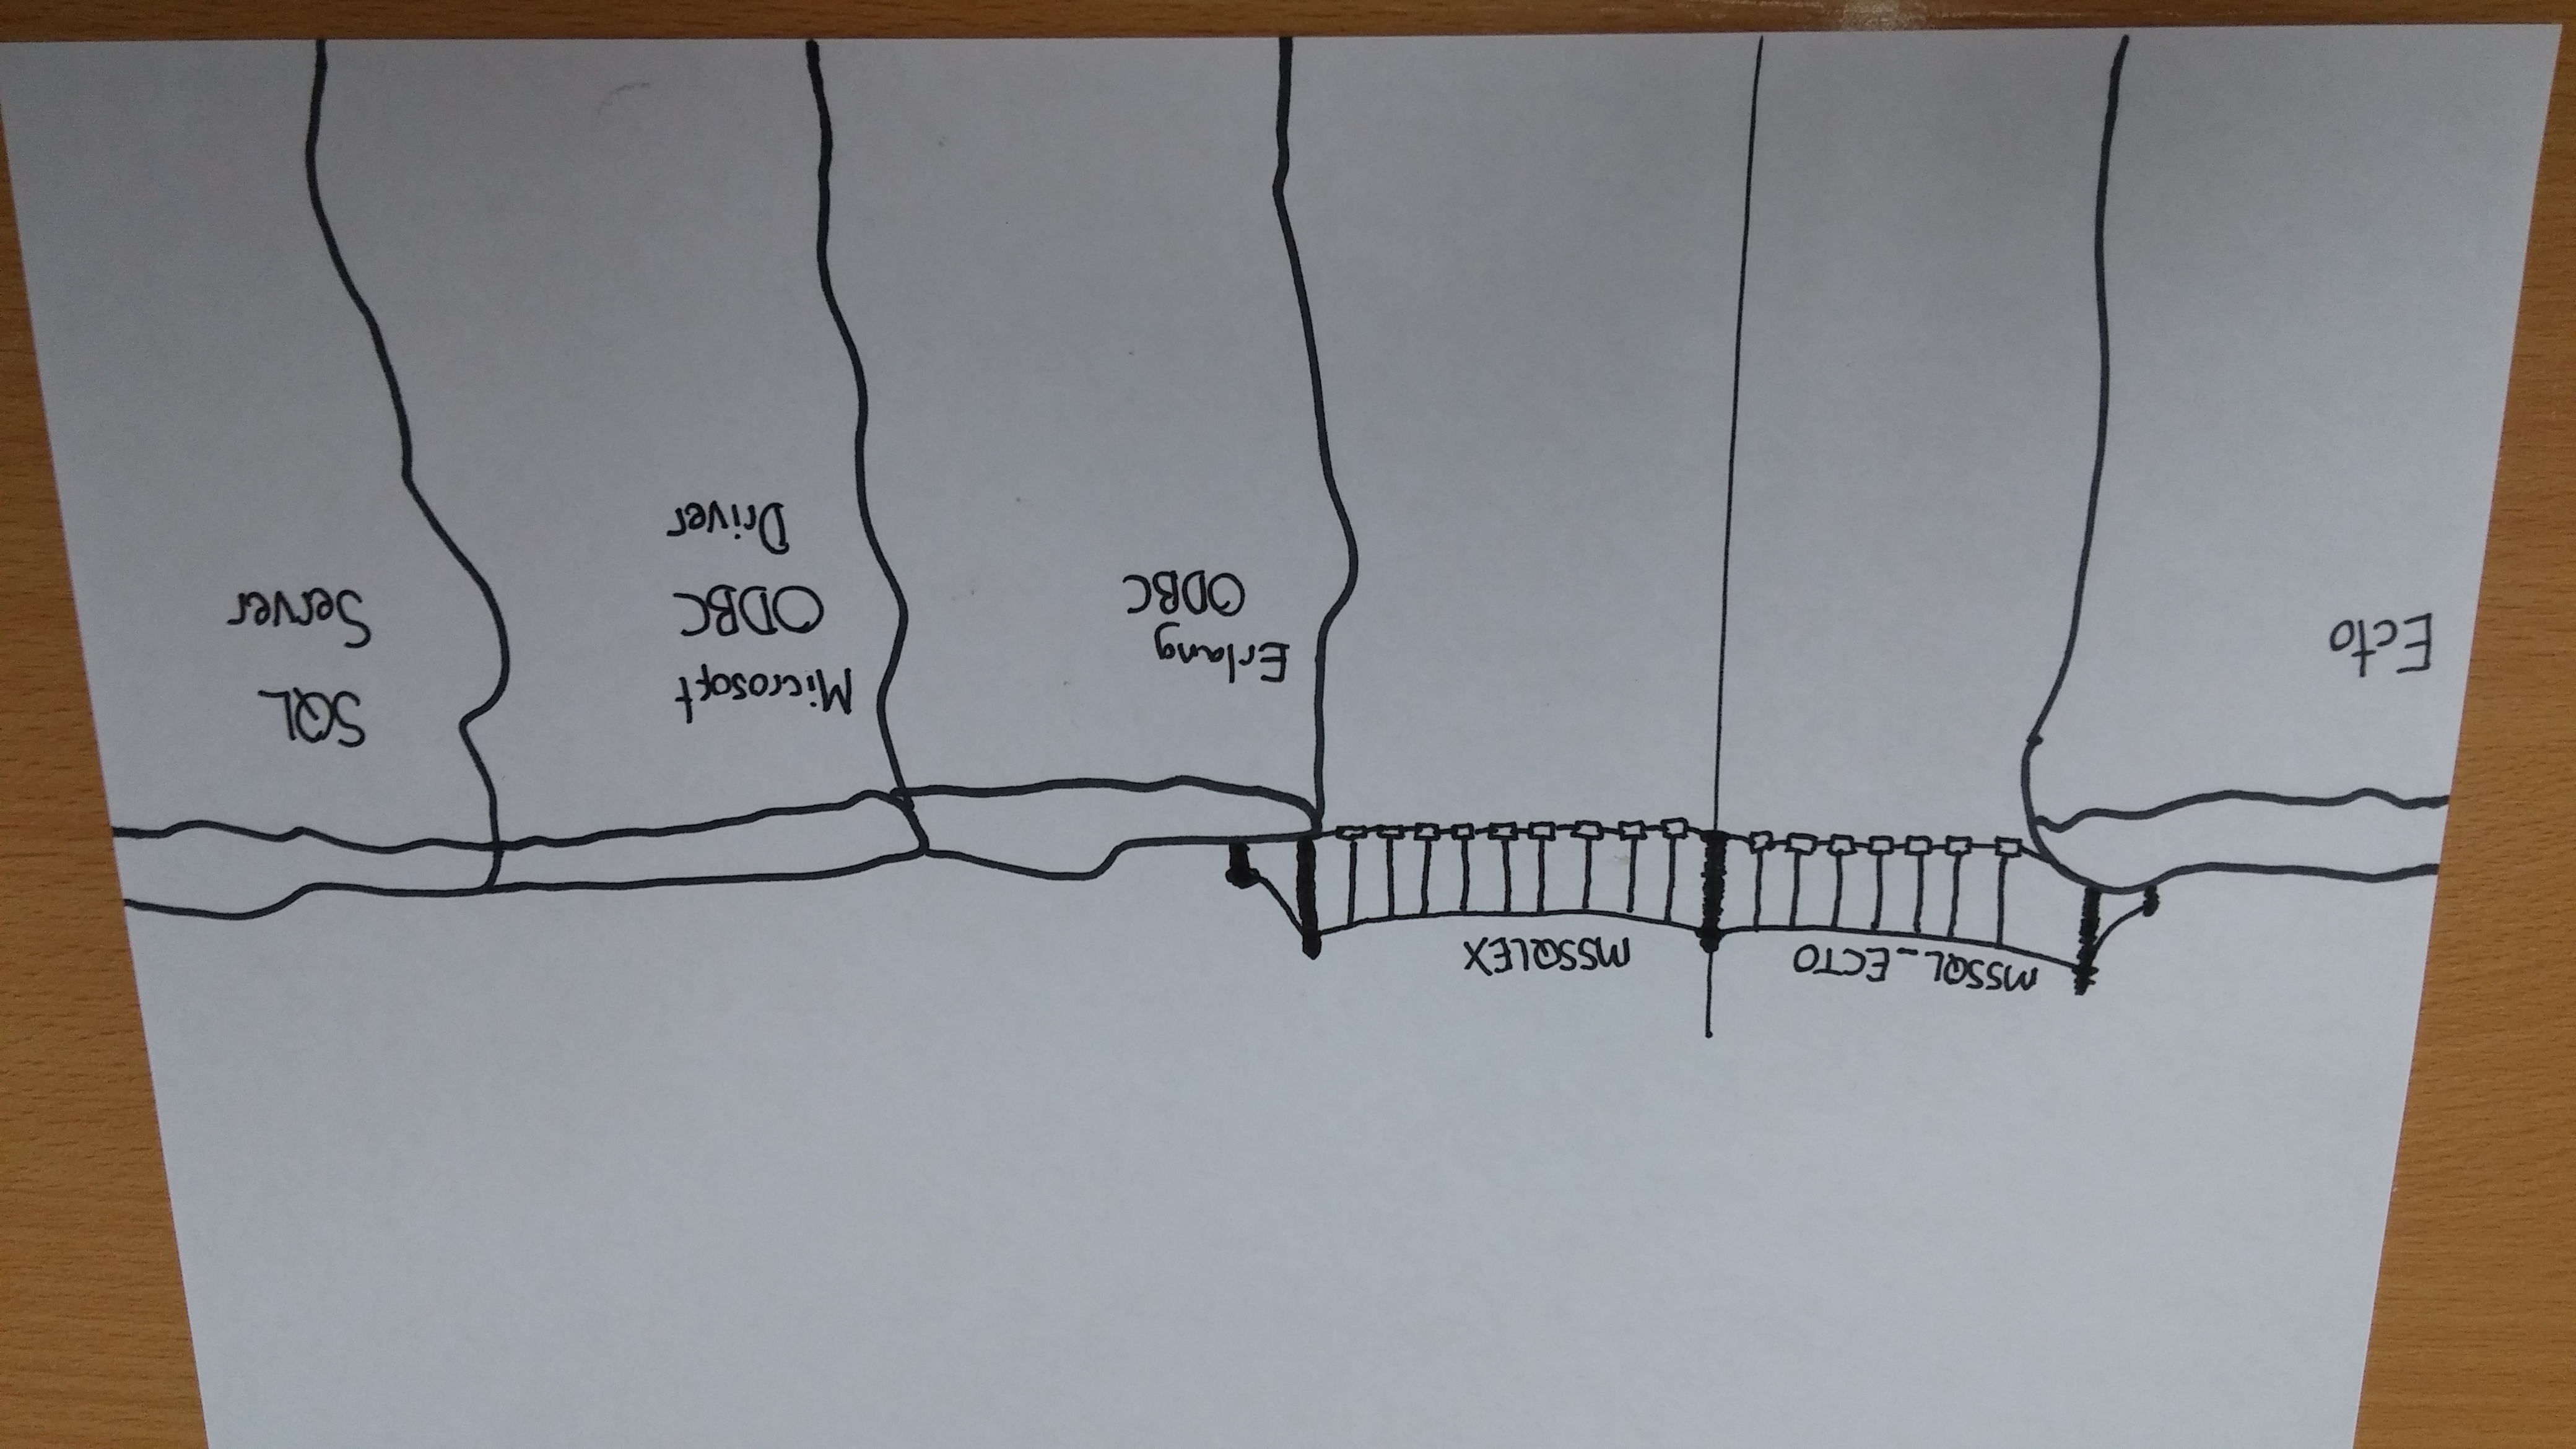 MSSQL_ECTO
MSSQLEX
Ecto
Erlang
ODBC
Microsoft
ODBC
Driver
SQL
Server